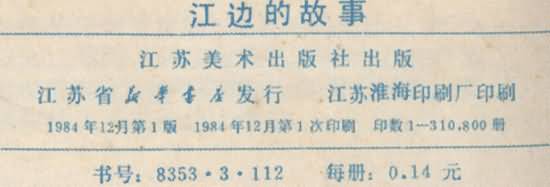 江边的故事
江苏美术出版社出版
江苏省新华书店发行 江苏淮海印刷厂印刷
1984年12月第1版 1984年12月第1次印刷 印数1—310,800册
书号：8353·3·112 每册：0.14元